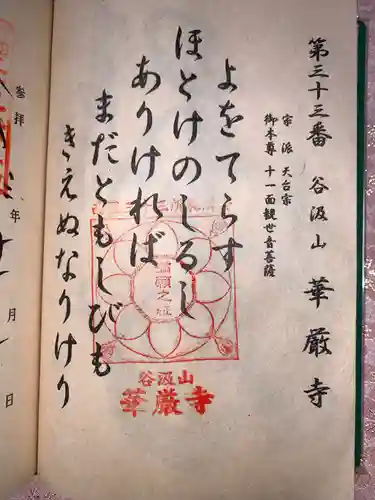 第三十三番 谷汲山 華厳寺
宗派 天台宗
御本尊 十一面観世音菩薩
よをてらす
ほとけのしるし
ありければ
まだともしびも
きえぬなりけり
満願之
谷汲山
華厳寺
参拝
年
月
日